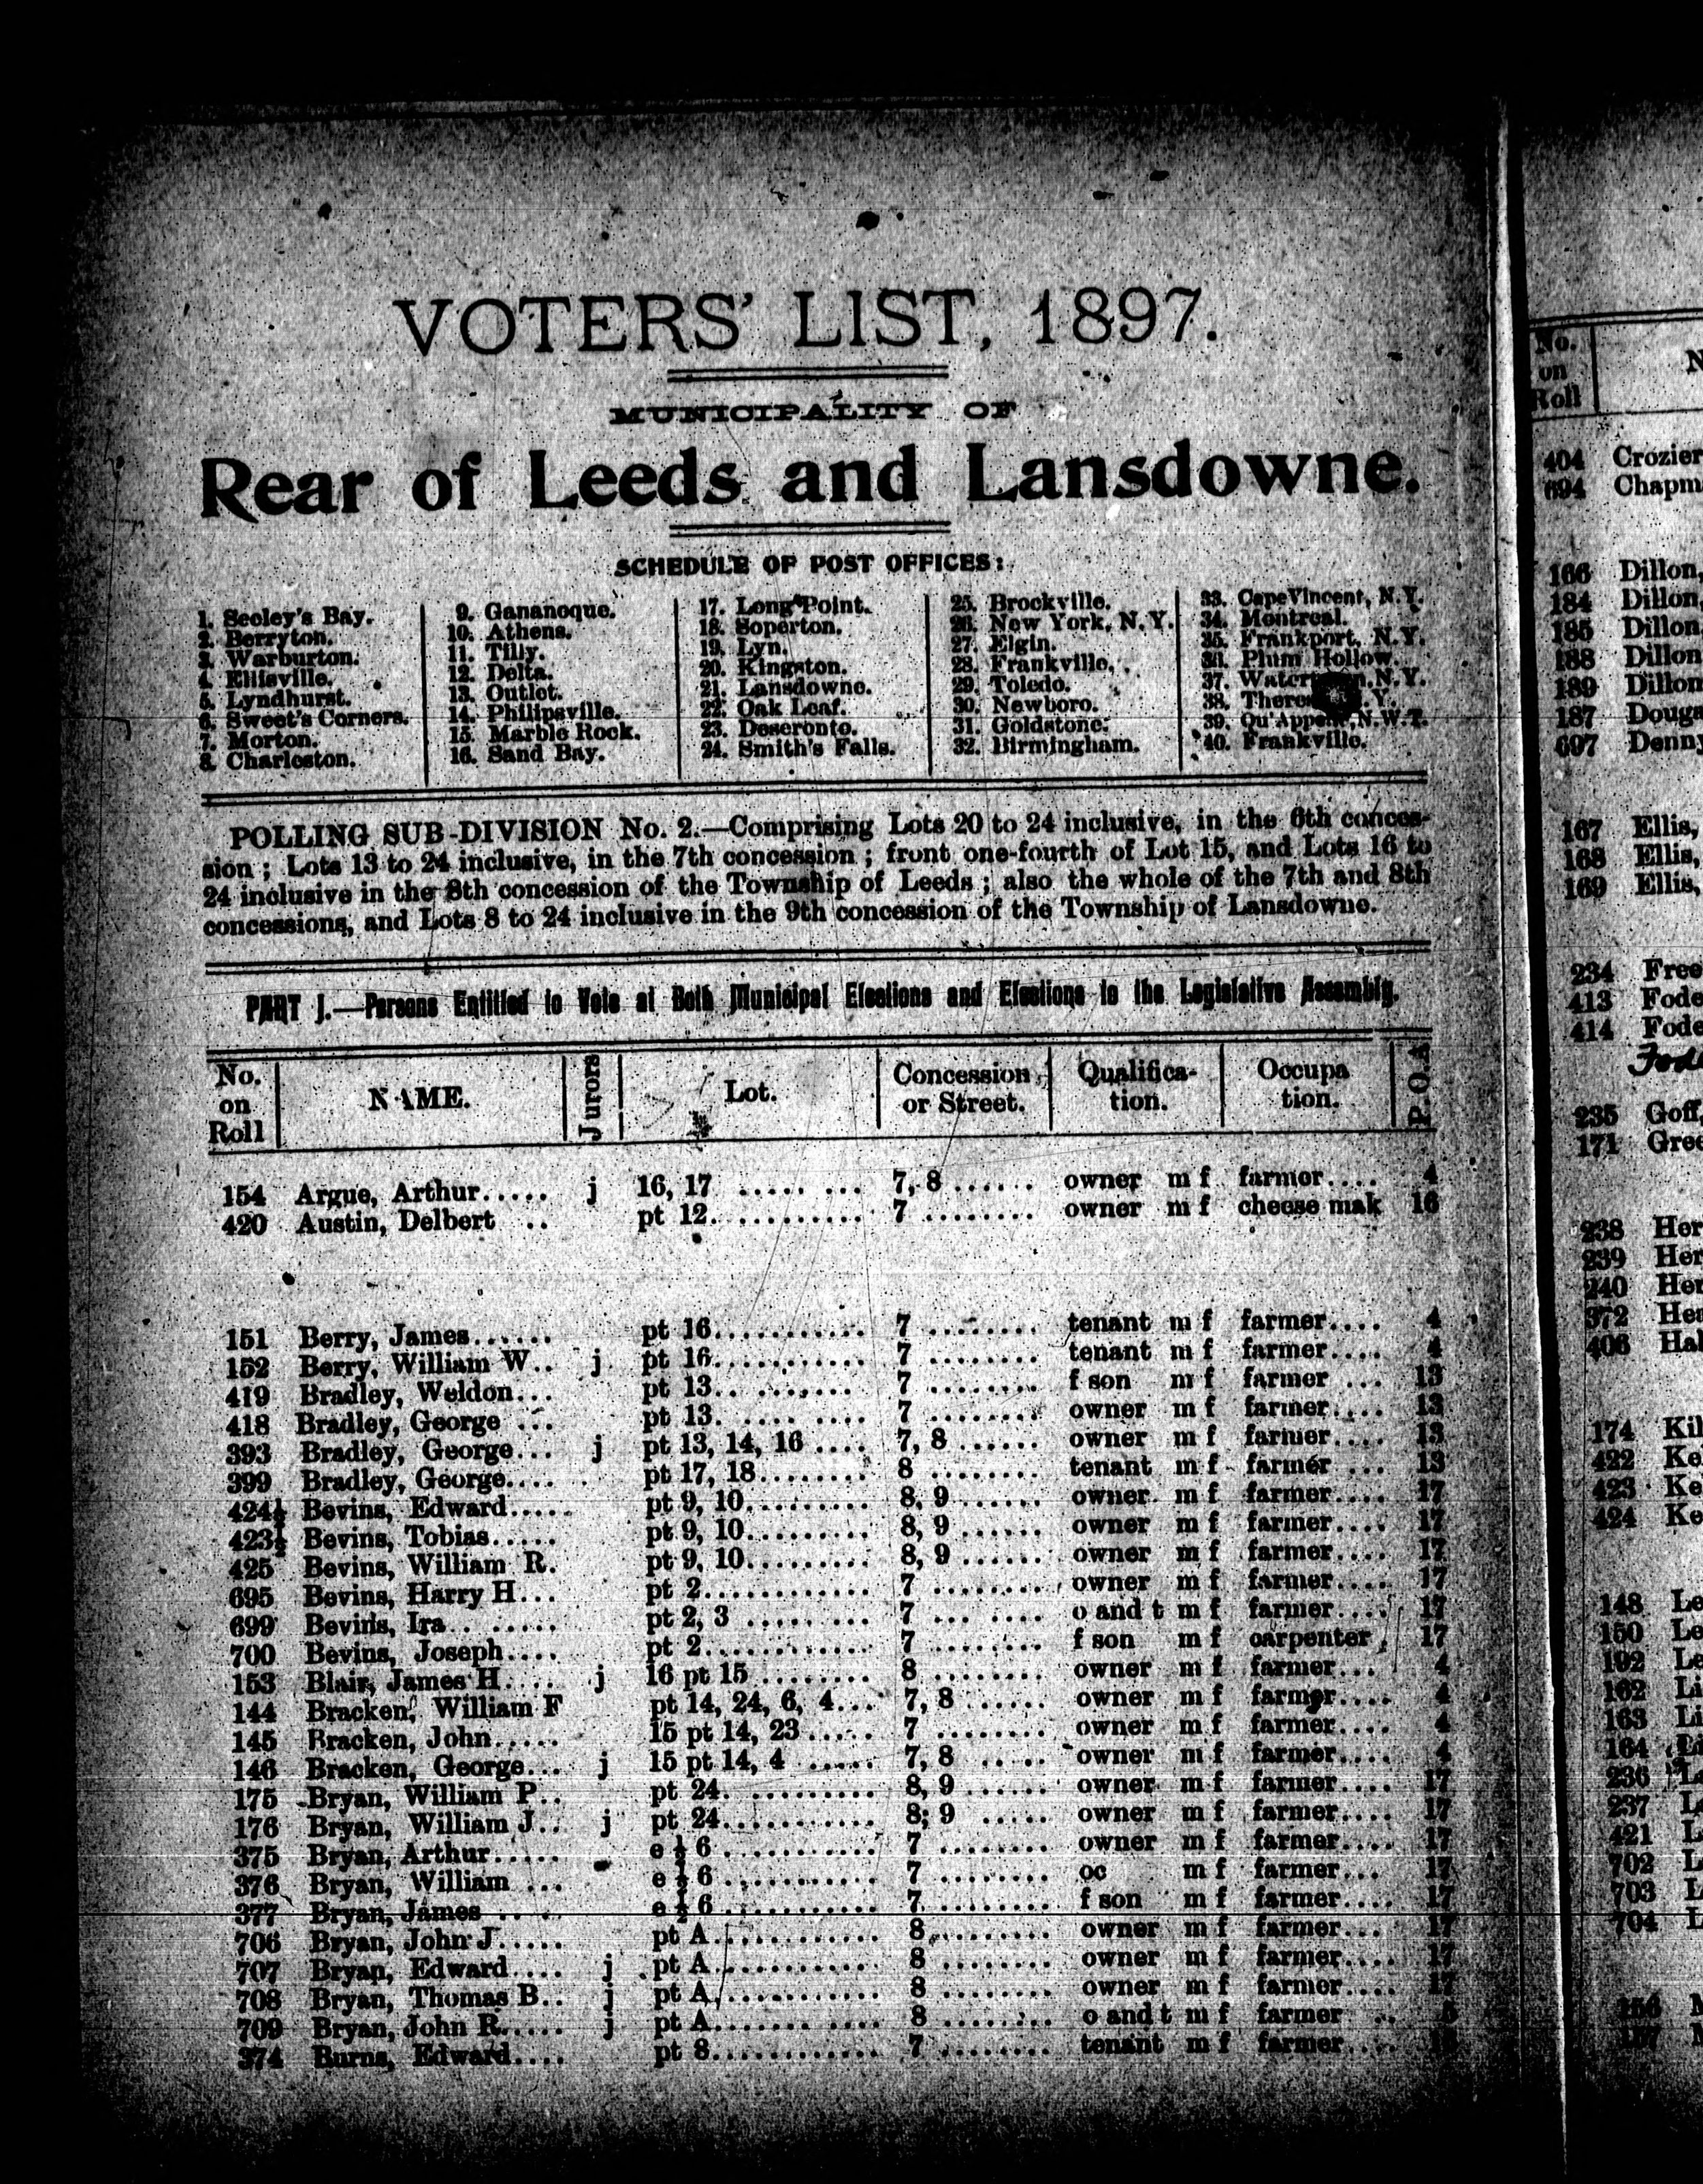 VOTERS' LIST, 1897.
MUNICIPALITY OF
Rear of Leeds and Lansdowne.
SCHEDULE OF POST OFFICES:
1. Seeley's Bay.
2. Berryton.
3. Warburton.
4. Ellisville.
5. Lyndhurst.
6. Sweet's Corners.
7. Morton.
8. Charleston.
9. Gananoque.
10. Athens.
11. Tilly.
12. Delta.
13. Outlet.
14. Philipsville.
15. Marble Rock.
16. Sand Bay.
17. Long Point.
18. Soperton.
19. Lyn.
20. Kingston.
21. Lansdowne.
22. Oak Leaf.
23. Deseronto.
24. Smith's Falls.
25. Brockville.
26. New York, N.Y.
27. Elgin.
28. Frankville.
29. Toledo.
30. Newboro.
31. Goldstone.
32. Birmingham.
33. Cape Vincent, N.Y.
34. Montreal.
35. Frankport, N.Y.
36. Plum Hollow.
37. N.Y.
38. Y.
39. Qu'Appelle, N.W.T.
40. Frankville.
POLLING SUB-DIVISION No. 2.—Comprising Lots 20 to 24 inclusive, in the 6th conces-
sion ; Lots 13 to 24 inclusive, in the 7th concession ; front one-fourth of Lot 15, and Lots 16 to
24 inclusive in the 8th concession of the Township of Leeds ; also the whole of the 7th and 8th
concessions, and Lots 8 to 24 inclusive in the 9th concession of the Township of Lansdowne.
PART I.—Persons Entitled to Vote at Both Municipal Elections and Elections to the Legislative Assembly.
No. on Roll NAME. Jurors Lot. Concession or Street. Qualifica- tion. Occupa tion. P.O.A
154 Argue, Arthur..... j 16, 17 ..... ... 7, 8 ...... owner m f farmer.... 4
420 Austin, Delbert .. pt 12........... 7 ........ owner m f cheese mak 16
151 Berry, James...... pt 16........... 7 ........ tenant m f farmer.... 4
152 Berry, William W.. j pt 16........... 7 ........ tenant m f farmer.... 4
419 Bradley, Weldon... pt 13.. ....... 7 ........ f son m f farmer ... 13
418 Bradley, George ... pt 13. .... .... 7 ........ owner m f farmer.... 13
393 Bradley, George... j pt 13, 14, 16 .... 7, 8 ...... owner m f farmer.... 13
399 Bradley, George.... pt 17, 18........ 8 ........ tenant m f farmer ... 13
424½ Bevins, Edward..... pt 9, 10......... 8, 9 ...... owner m f farmer.... 17
423½ Bevins, Tobias...... pt 9, 10......... 8, 9 ...... owner m f farmer.... 17
425 Bevins, William R. pt 9, 10......... 8, 9 ...... owner m f farmer.... 17
695 Bevins, Harry H... pt 2............ 7 ........ owner m f farmer.... 17
699 Bevins, Ira.. ...... pt 2, 3 ......... 7 ... .... o and t m f farmer.... 17
700 Bevins, Joseph.... pt 2............ 7 ........ f son m f carpenter 17
153 Blair, James H.... j 16 pt 15 ........ 8 ........ owner m f farmer... 4
144 Bracken, William F pt 14, 24, 6, 4... 7, 8 ...... owner m f farmer.... 4
145 Bracken, John..... 15 pt 14, 23 ..... 7 ........ owner m f farmer.... 4
146 Bracken, George... j 15 pt 14, 4 ..... 7, 8 ..... owner m f farmer.... 4
175 Bryan, William P.. pt 24. ......... 8, 9 ...... owner m f farmer.... 17
176 Bryan, William J.. j pt 24........... 8; 9 ..... owner m f farmer.... 17
375 Bryan, Arthur..... e ½ 6 ........... 7 ........ owner m f farmer.... 17
376 Bryan, William ... e ½ 6 ........... 7 ........ oc m f farmer... 17
377 Bryan, James .. .. e ½ 6 ........... 7 ........ f son m f farmer.... 17
706 Bryan, John J..... pt A............ 8 ........ owner m f farmer... 17
707 Bryan, Edward.... j pt A............ 8 ........ owner m f farmer.... 17
708 Bryan, Thomas B.. j pt A............ 8 ........ owner m f farmer.... 17
709 Bryan, John R..... j pt A....... .... 8 ........ o and t m f farmer .. 5
374 Burns, Edward.... pt 8............ 7 ........ tenant m f farmer....
No. on Roll N
404 Crozier
694 Chapm
166 Dillon,
184 Dillon
185 Dillon
188 Dillon
189 Dillon
187 Douga
697 Denny
167 Ellis,
168 Ellis,
169 Ellis,
234 Free
413 Fode
414 Fode
Fod
235 Goff
171 Gree
238 Her
239 Her
240 Her
372 Hea
406 Hal
174 Kil
422 Ke
423 Ke
424 Ke
148 Le
150 Le
192 Le
162 Li
163 Li
164
236 L
237 L
421 L
702 L
703 L
704 L